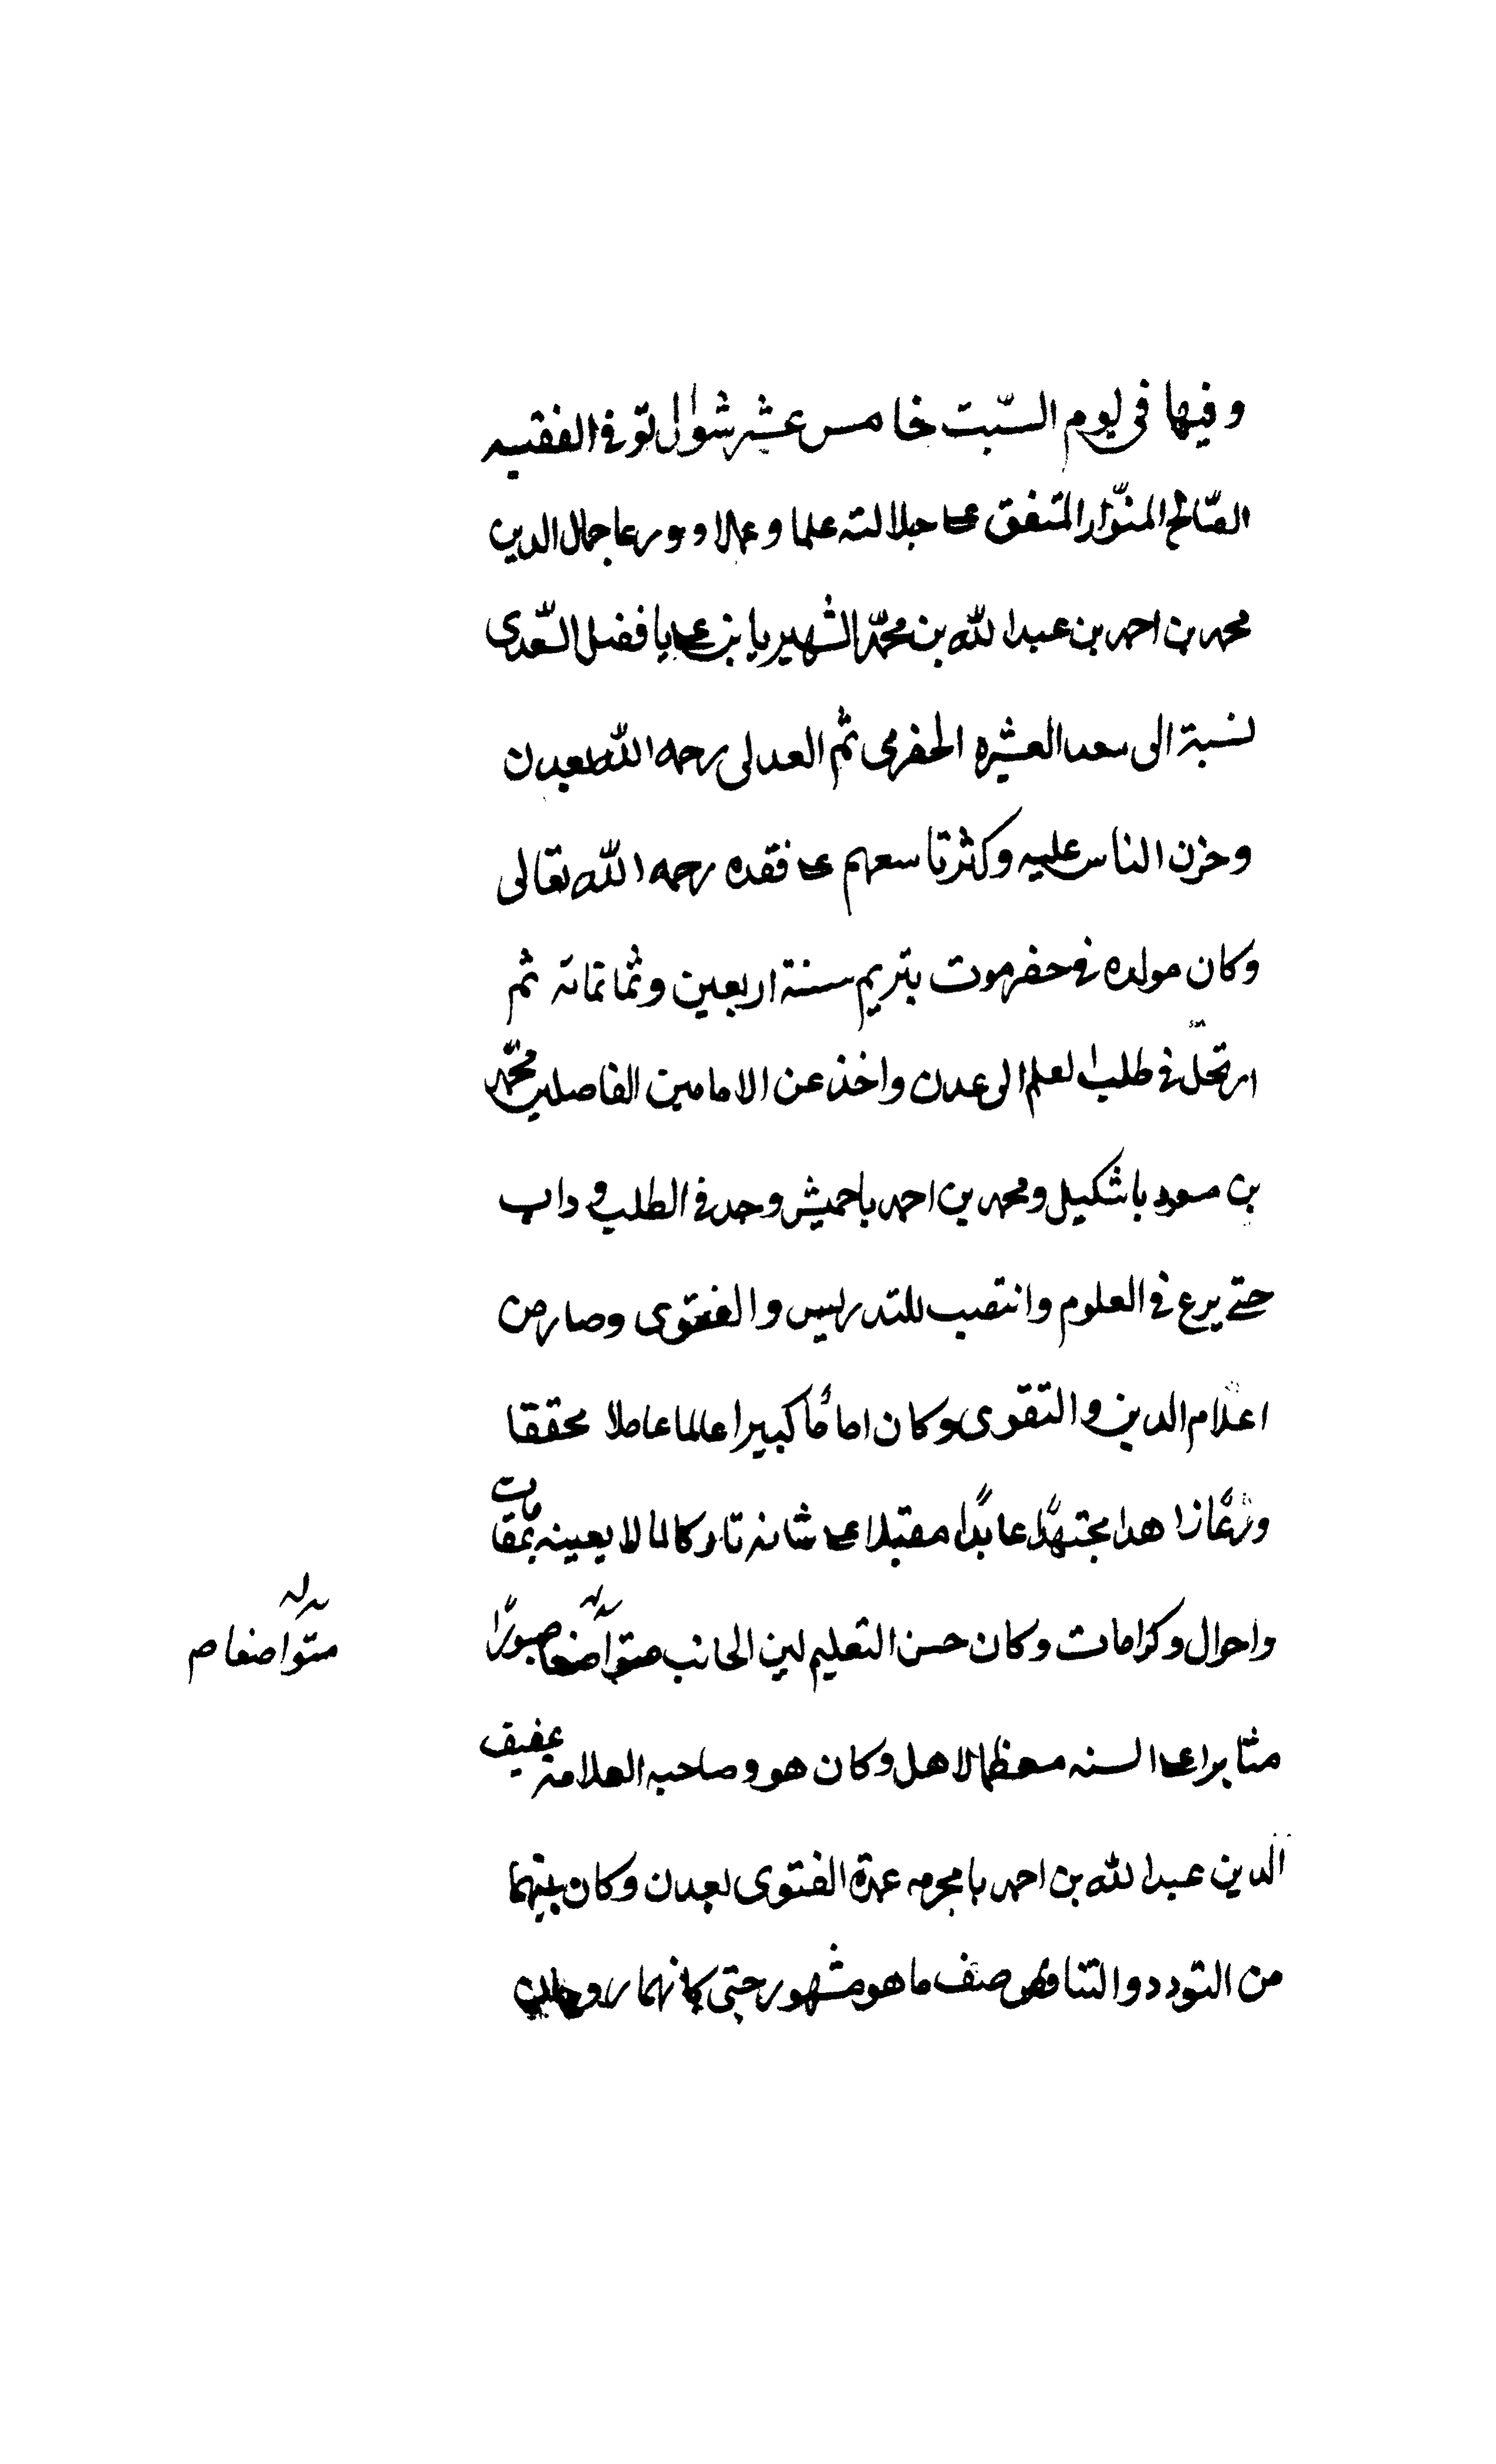 وفيها في يوم السّبت خامس عشر شوال توفي الفقيه
الصّالح المتفق على جلالته علما وعملا وورعا جمال الدين
محمد بن احمد بن عبد الله بن محمّد الشهير با بن على بافضل السّعدى
نسبة الى سعد العشيره الحضرمى ثم العدلى رحمه الله بعدن
وحزن الناس عليه وكثر تاسعهم على فقده رحمه الله تعالى
وكان مولده في حضرموت بتريم سنة اربعين وثمانمائة ثم
ارتحل في طلب العلم الى عدن واخذ عن الامامين الفاضلين محمّد
بن مسعود باشكيل ومحمد بن احمد باحميش وجد في الطلب وداب
حتى برع في العلوم وانتصب للتدريس والفتوى وصار من
اعلام الدين والتقوى وكان اماماً كبيرا عالما عاملا محققا
ورعًا زاهدا مجتهدًا عابدًا مقبلا على شانه تاركا لما لا يعينه بمقامات
واحوال وكرامات وكان حسن التعليم لين الجانب متواضعا صبورًا
متواضعا ص
مثابرا على السنه معظما لاهل وكان هو وصاحبه العلامة عفيف
الدين عبد الله بن احمد بامخرمه عمدة الفتوى بعدن وكان بينهما
من التودد والتناصف ما هو مشهور حتى كانهما روحان